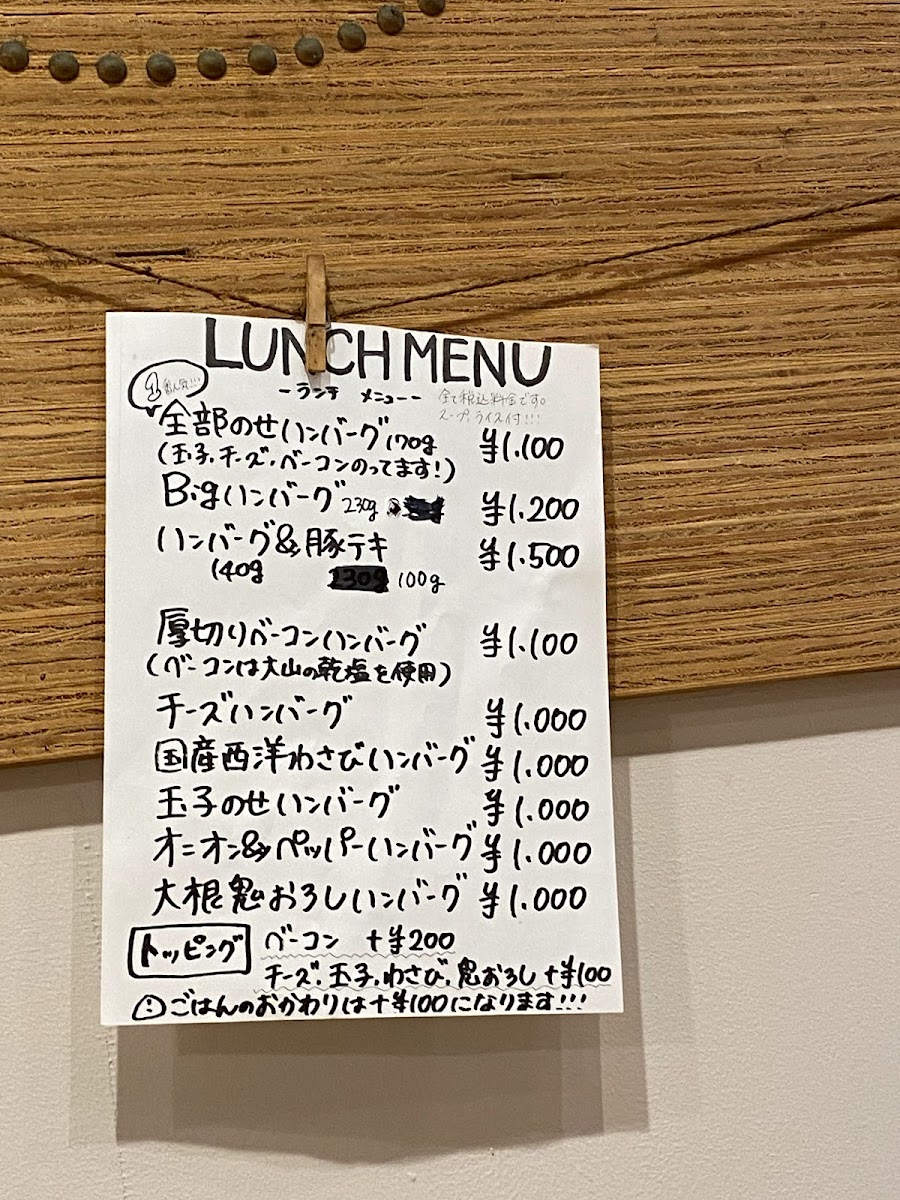 LUNCH MENU
ーランチ メニューー
1番人気!!!
全て税込料金です。
スープ、ライス付!!!
全部のせハンバーグ170g ¥1.100
(玉子、チーズ、ベーコンのってます!)
Bigハンバーグ 230g ¥1.200
ハンバーグ&豚テキ ¥1.500
140g 130g 100g
厚切りベーコンハンバーグ ¥1.100
(ベーコンは大山の乾塩を使用)
チーズハンバーグ ¥1.000
国産西洋わさびハンバーグ ¥1.000
玉子のせハンバーグ ¥1.000
オニオン&ペッパーハンバーグ ¥1.000
大根鬼おろしハンバーグ ¥1.000
トッピング ベーコン +¥200
チーズ、玉子、わさび、鬼おろし +¥100
ごはんのおかわりは+¥100になります!!!